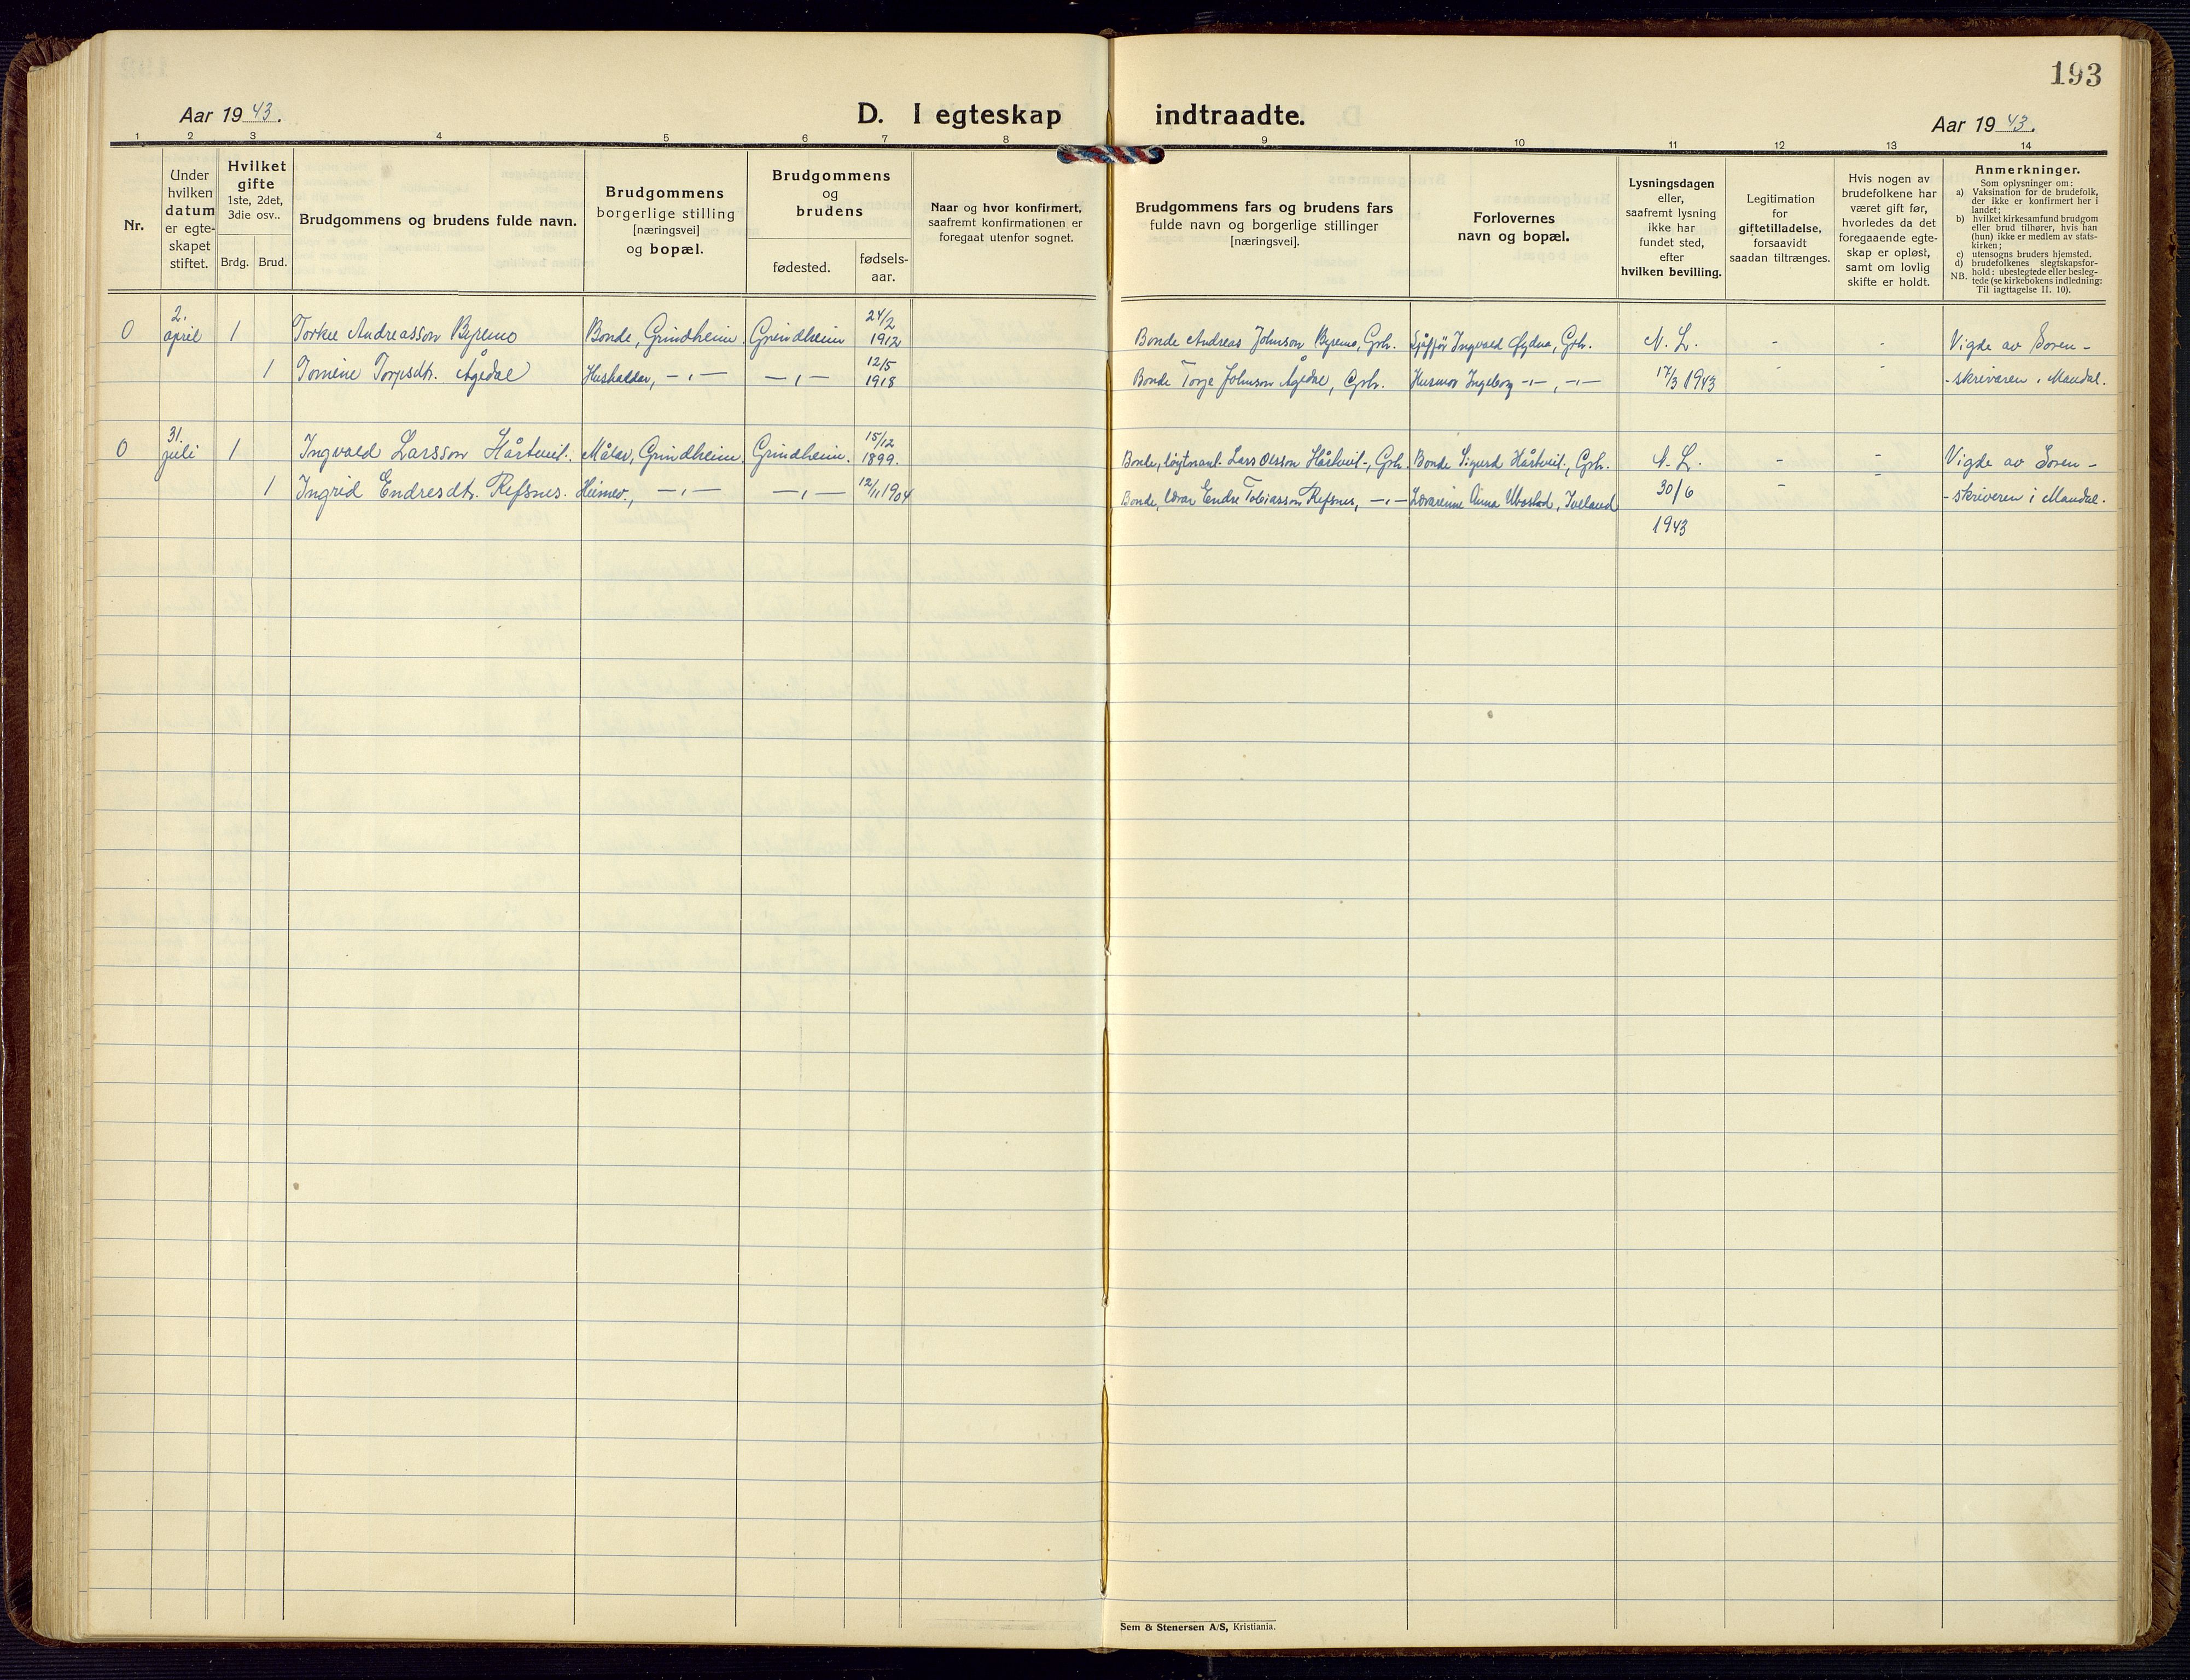 193
Aar 1943.
D. I egteskap indtraadte.
Aar 1943.
1 2 3 4 5 6 7 8 9 10 11 12 13 14
Nr.
Under
hvilken
datum
er egte-
skapet
stiftet.
Hvilket
gifte
1ste, 2det,
3die osv..
Brdg. Brud.
Brudgommens og brudens fulde navn.
Brudgommens
borgerlige stilling
[næringsvei]
og bopæl.
Brudgommens
og
brudens
fødested.
fødsels-
aar.
Naar og hvor konfirmert,
saafremt konfirmationen er
foregaat utenfor sognet.
Brudgommens fars og brudens fars
fulde navn og borgerlige stillinger
[næringsvei].
Forlovernes
navn og bopæl.
Lysningsdagen
eller,
saafremt lysning
ikke har
fundet sted,
efter
hvilken bevilling.
Legitimation
for
giftetilladelse,
forsaavidt
saadan tiltrænges.
Hvis nogen av
brudefolkene har
været gift før,
hvorledes da det
foregaaende egte-
skap er opløst,
samt om lovlig
skifte er holdt.
Anmerkninger.
Som oplysninger om:
a) Vaksination for de brudefolk,
der ikke er konfirmert her i
landet;
b) hvilket kirkesamfund brudgom
eller brud tilhører, hvis han
(hun) ikke er medlem av stats-
kirken;
c) utensogns bruders hjemsted.
d) brudefolkenes slegtskapsfor-
hold: ubeslegtede eller besleg-
tede (se kirkebokens indledning:
NB. Til iagttagelse II. 10).
0 2. april 1 Torkel Andreasson Byremo Bonde, Grindheim. Grindheim 24/2 1912 Bonde Andreas Johnson Byremo, Grh. Ingvald Øydna, Grh. N. L. - - Vigde av Soren-
1 Tomine Torjesdtr. Ågedal Hushaldar, -"- -"- 12/5 1918 Bonde Torje Johnson Ågedal, Grh. Husmor Ingeborg -"-, -"- 17/3 1943 - - -skrivaren i Mandal.
0 31. juli 1 Ingvald Larsson Hårtveit. Målar, Grindheim. Grindheim. 15/12 1899. Bonde, løytnant Lars Olsson Hårtveit, Grh. Bonde Sigurd Hårtveit, Grh. N. L. - - Vigde av Soren-
1 Ingrid Endresdtr. Refsnes. Heimev., -"- -"- 12/11 1904 Bonde, lærar Endre Tobiasson Refsnes, -"- Lærarinne Anna Ubostad, Iveland 30/6 - - -skriveren i Mandal.
1943
Sem & Stenersen A/S, Kristiania.